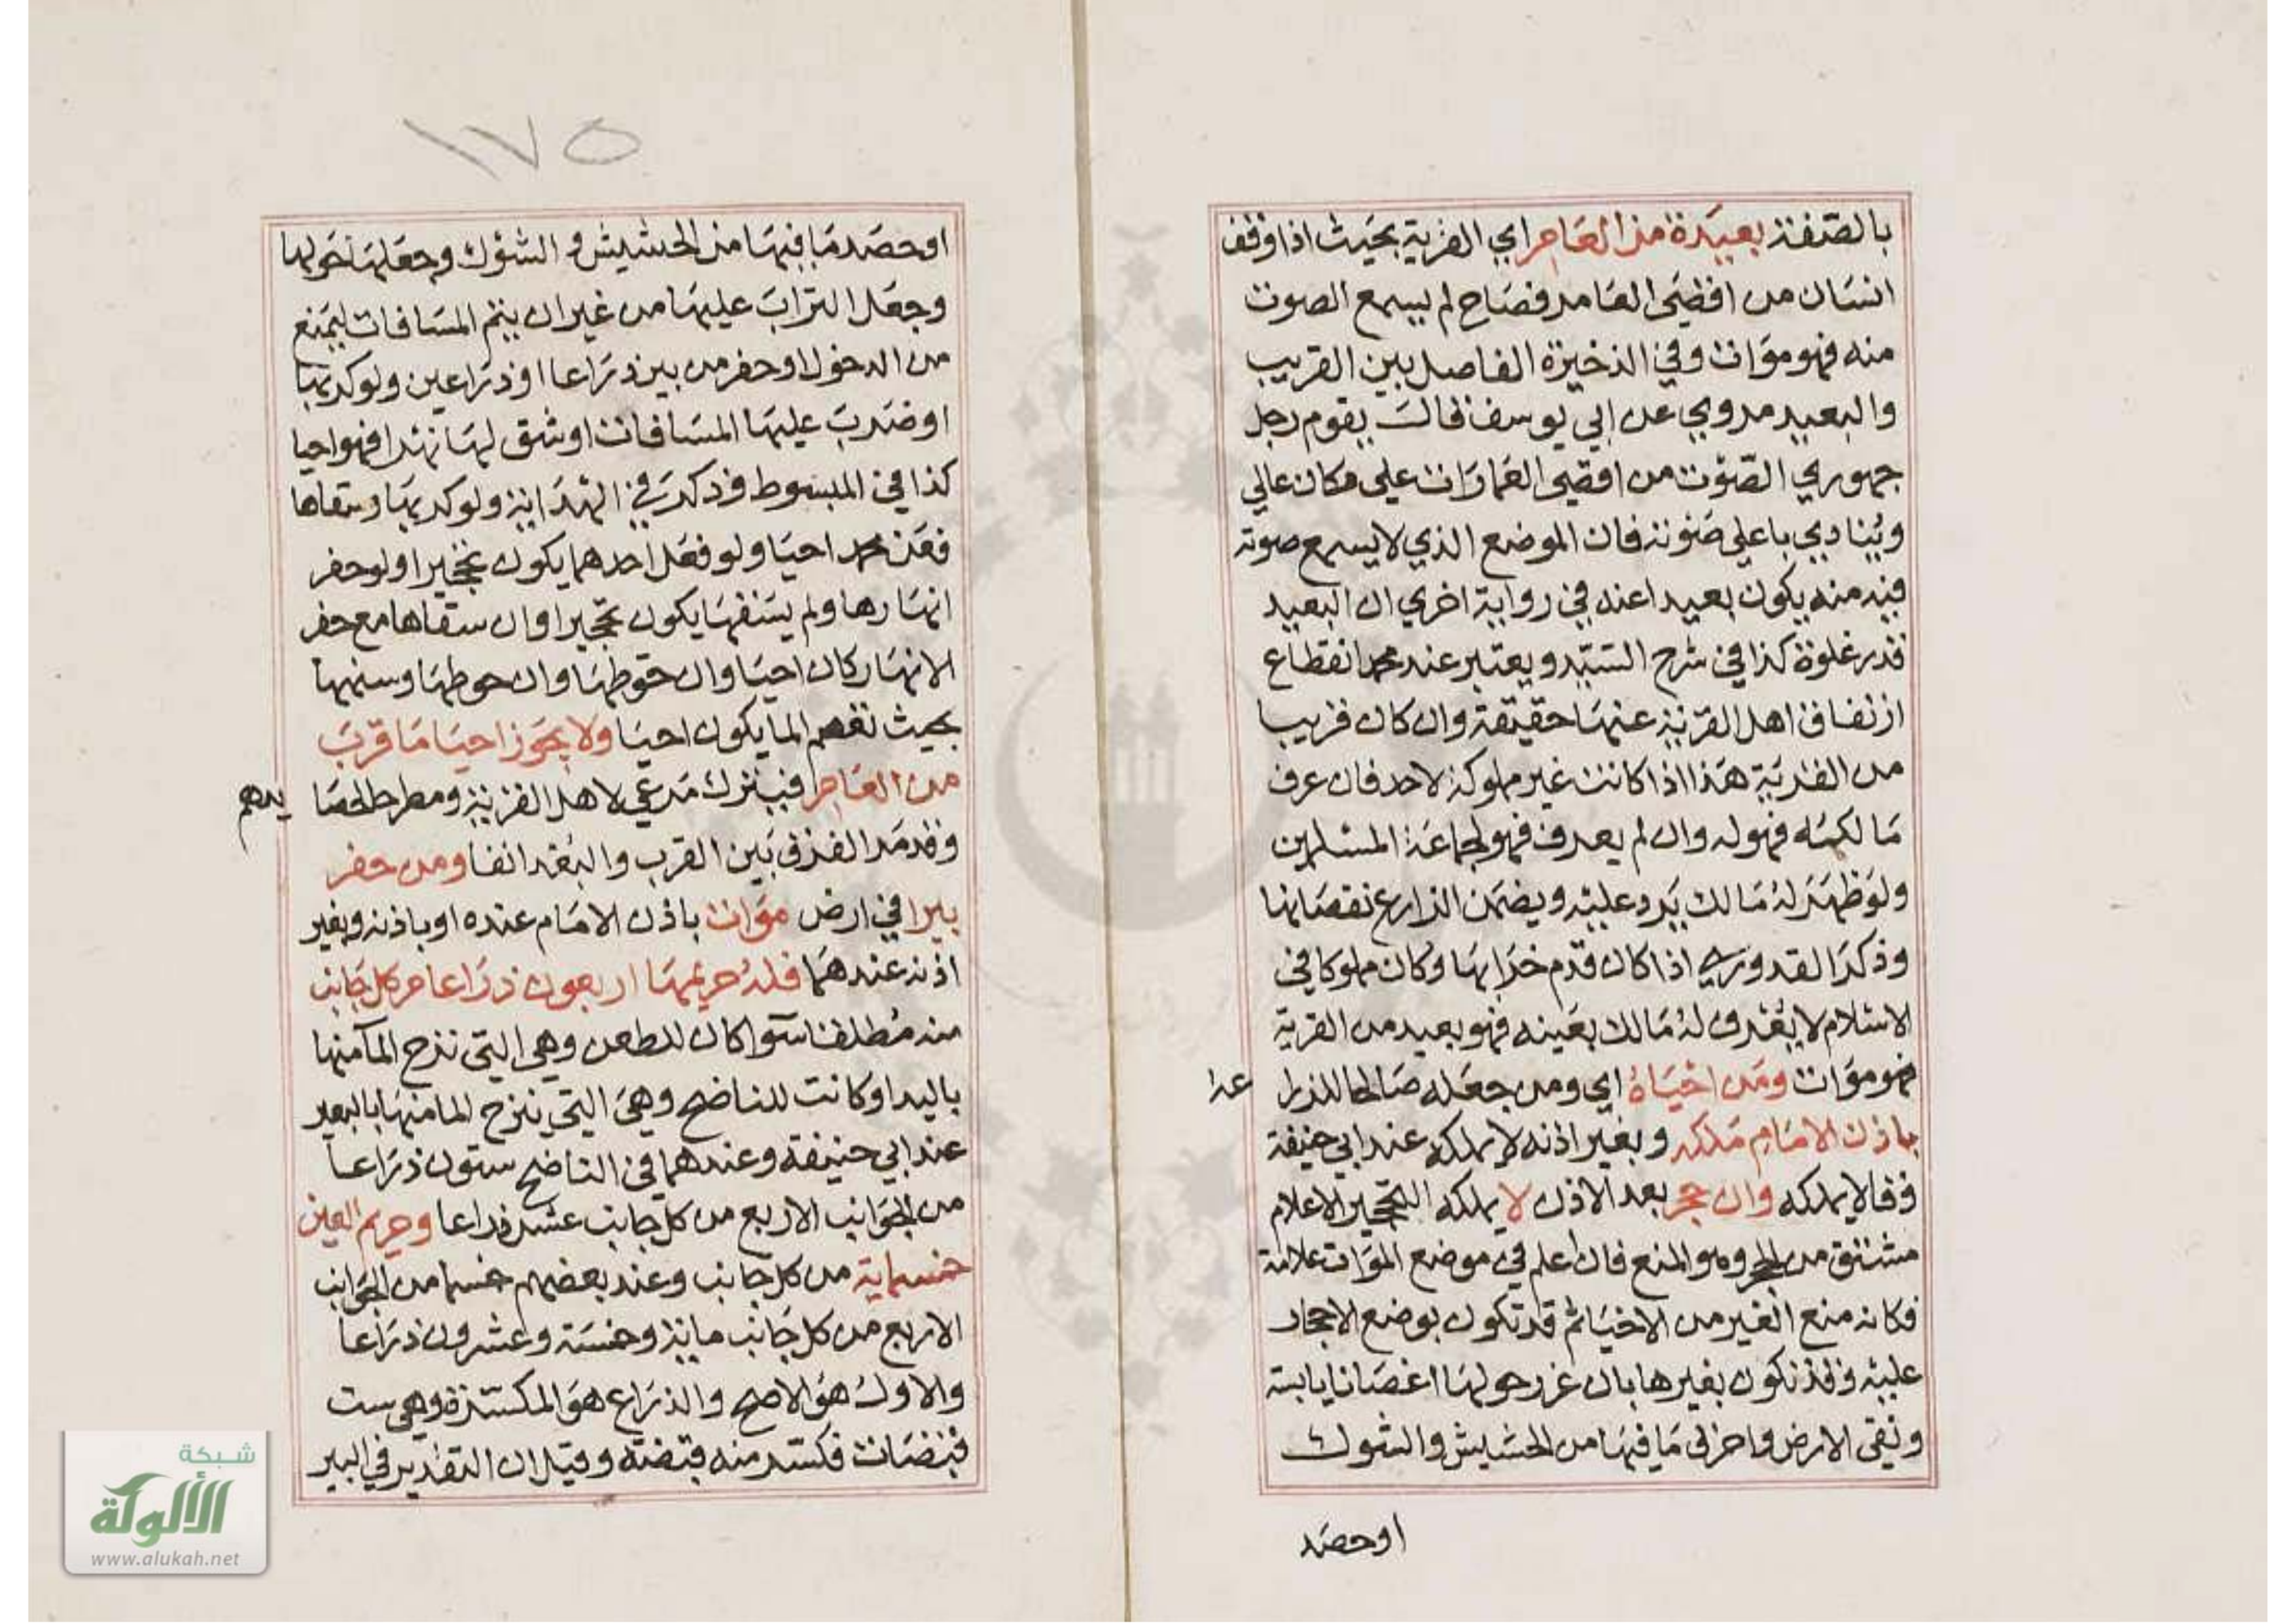 بالصفة بعيدة من العامر اي القرية بحيث اذا وقف
انسان من اقصى العامر فصاح لم يسمع الصوت
منه فهو موات وفي الذخيرة الفاصل بين القريب
والبعيد مروي عن ابي يوسف قال يقوم رجل
جهوري الصوت من اقصى العمارات على مكان عالي
وينادي باعلى صوته فان الموضع الذي لا يسمع صوته
فيه منه يكون بعيدا عنه في رواية اخري ان البعيد
قدر غلوة كذا في شرح السيد ويعتبر عند محمد انقطاع
ارتفاق اهل القرية عنها حقيقة وان كان قريبا
من القرية هذا اذا كانت غير مملوكة لاحد فان عرف
مالكه فهو له وان لم يعرف فهو لجماعة المسلمين
ولو ظهر له مالك يرد عليه ويضمن الزارع نقصانها
وذكر القدوري اذا كان قدم خرابها وكان مملوكا في
الاسلام لا يعرف له مالك بعينه فهو بعيد من القرية
فهو موات ومن احياه اي ومن جعله صالحا للزرا عه
باذن الامام ملكه وبغير اذنه لا يملكه عند ابي حنيفة
وقالا يملكه وان حجر بعد الاذن لا يملكه التحجير الاعلام
مشتق من الحجر وهو المنع فان اعلم في موضع الموات علامة
فكانه منع الغير من الاحيا ثم قد تكون بوضع الاحجار
عليه وقد تكون بغيرها بان غرز حولها اغصانا يابسة
ونقى الارض واحرق ما فيها من الحشيش والشوك
او حصد
١٧٥
او حصد ما فيها من الحشيش و الشوك وجعلها حولها
وجعل التراب عليها من غير ان يتم المسافات ليمنع
من الدخول او حفر من بير ذراعا او ذراعين ولو كربها
او ضرب عليها المسافات او شق لها نهرا فهو احيا
كذا في المبسوط وذكر في الهداية ولو كربها وسقاها
فعن محمد احيا ولو فعل احدهما يكون تحجيرا ولو حفر
انهارها ولم يسقها يكون تحجيرا وان سقاها مع حفر
الانهار كان احيا وان حوطها وان حوطها وسنمها
بحيث تعصم الما يكون احيا ولا يجوز احيا ما قرب
من العامر فيترك مرعي لاهل القرية ومطرحا لحصا يدهم
وقد مر الفرق بين القرب والبعد انفا ومن حفر
بيرا في ارض موات باذن الامام عنده او باذنه وبغير
اذنه عندهما فله حريمها اربعون ذراعا من كل جانب
منه مطلقا سوا كان للطعن وهي التي تنزح الما منها
باليد او كانت للناضح وهي التي ينزح الما منها بالبعير
عند ابي حنيفة وعندهما في الناضح ستون ذراعا
من الجوانب الاربع من كل جانب عشر ذراعا وحريم العين
خمسماية من كل جانب وعند بعضهم خمسما من الجوانب
الاربع من كل جانب ماية وخمسة وعشرون ذراعا
والاول هو الاصح والذراع هو المكسرة وهي ست
قبضات فكسر منه قبضة وقيل ان التقدير في البير
شبكة
الألوكة
www.alukah.net